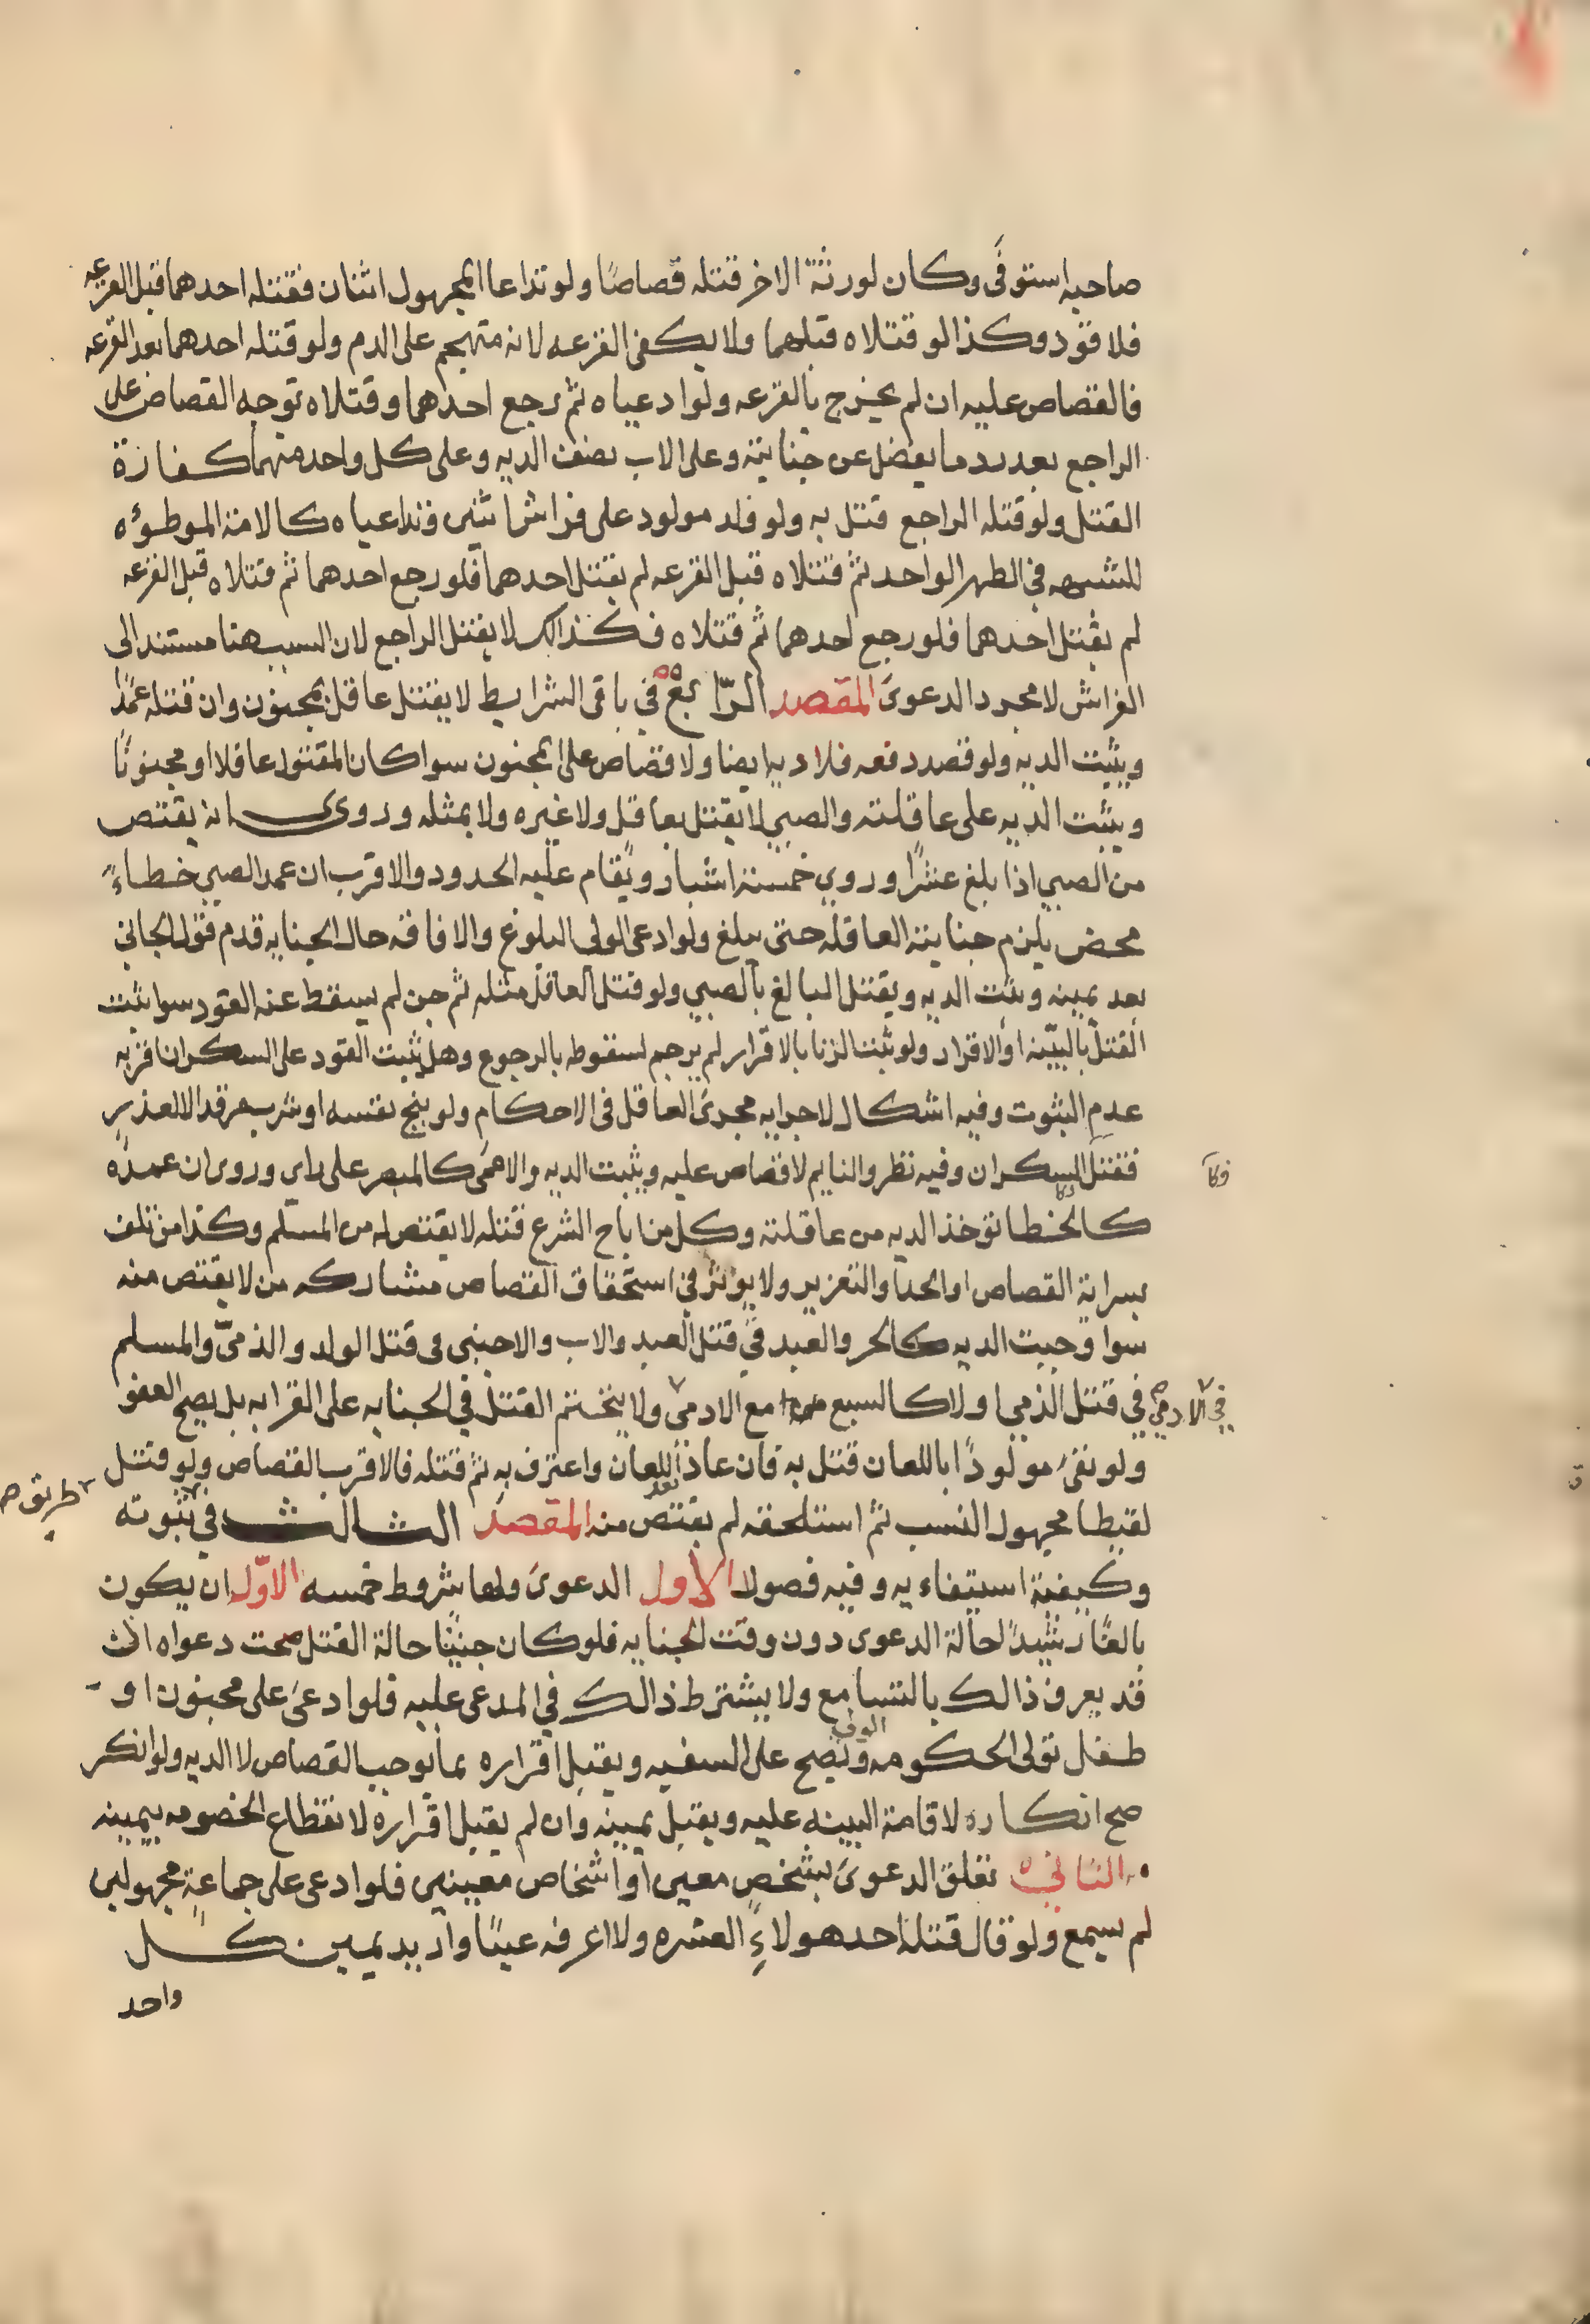 صاحبه استوفى وكان لورثة الاخر قتله قصاصًا ولو تداعا المجهول اثنان فقتله احدهما قبل القرعه
فلا قود وكذا لو قتلاه قبلهما ولا يكفى القرعه لانه متهجم على الدم ولو قتله احدهما بعد القرعه
فالقصاص عليه ان لم يخرج بالقرعه ولو ادعياه ثم رجع احدهما وقتلاه توجه القصاص على
الراجع بعد رد ما يفضل عن جنايته وعلى الاب نصف الديه وعلى كل واحد منهما كفارة
القتل ولو قتله الراجع قتل به ولو ولد مولود على فراش اثنين فتداعياه كالامة الموطؤه
للشبهه في الطهر الواحد ثم قتلاه قبل القرعه لم يقتل احدهما فلو رجع احدهما ثم قتلاه قبل القرعه
لم يقتل احدهما فلو رجع احدهما ثم قتلاه فكذالك لا يقتل الراجع لان السبب هنا مستند الى
الفراش لا مجرد الدعوى المقصد الرّابع في باقى الشرايط لا يقتل عاقل بمجنون وان قتله عمدًا
ويثبت الديه ولو قصد دفعه فلا ديه ايضا ولا قصاص على المجنون سوا كان المقتول عاقلا او مجنونًا
ويثبت الديه على عاقلته والصبي لا يقتل بعاقل ولا غيره ولا بمثله وروى انه يقتص
من الصبي اذا بلغ عشرًا وروي خمسة اشبار ويقام عليه الحدود والاقرب ان عمد الصبي خطاءً
محض يلزم جنايته العاقله حتى يبلغ ولو ادعى الولى البلوغ والافاقه حال الجنايه قدم قول الجاني
بعد يمينه ويثبت الديه ويقتل البالغ بالصبي ولو قتل العاقل مثله ثم جن لم يسقط عنه القود سوا ثبت
القتل بالبيّنه او الاقرار ولو ثبت الزنا بالاقرار لم يرجم لسقوطه بالرجوع وهل يثبت القود على السكران اقربه
عدم الثبوت وفيه اشكال لاجرايه مجرى العاقل فى الاحكام ولو بنج نفسه او شرب مرقدا لا لعذرٍ
فقتل السكران وفيه نظر والنايم لا قصاص عليه ويثبت الديه والاعمى كالمبصر على راى وروى ان عمده
كالخطا توخذ الديه من عاقلته وكل من اباح الشرع قتله لا يقتص له من المسلم وكذا من تلف
بسراية القصاص او الحد او التعزير ولا يوثر في استحقاق القصاص مشاركه من لا يقتص منه
سوا وجبت الديه كالحر والعبد في قتل العبد والاب والاجنبى فى قتل الولد والذمىّ والمسلم
في قتل الذمي او لا كالسبع مع الادمى ولا يتحتم القتل في الجنايه على القرابه بل يصح العفو
في الادمي
ولو نفى مولودًا باللعان قتل به فان عاد بعد اللعان واعترف به ثم قتله فالاقرب القصاص ولو قتل
لقيطا مجهول النسب ثم استلحقه لم يقتص منه المقصد الثالث في طريق ثبوته
وكيفية استيفاءيه وفيه فصولا الاول الدعوى ولها شروط خمسه الاوّل ان يكون
بالغًا رشيدًا لحالة الدعوى دون وقت الجنايه فلو كان جنينًا حالة القتل صحت دعواه اذ
قد يعرف ذالك بالتسامع ولا يشترط ذالك في المدعى عليه فلو ادعى على مجنون او
طفل تولى الحكومه الولى ويصح على السفيه ويقبل اقراره بما يوجب القصاص لا الديه ولو انكر
صح انكاره لاقامة البينه عليه ويقبل يمينه وان لم يقبل اقراره لانقطاع الخصومه بيمينه
الثاني تعلق الدعوى بشخص معين او اشخاص معينين فلو ادعى على جماعةٍ مجهولين
لم يسمع ولو قال قتله احد هولاءِ العشره ولا اعرفه عينًا واريد يمين كل
واحد